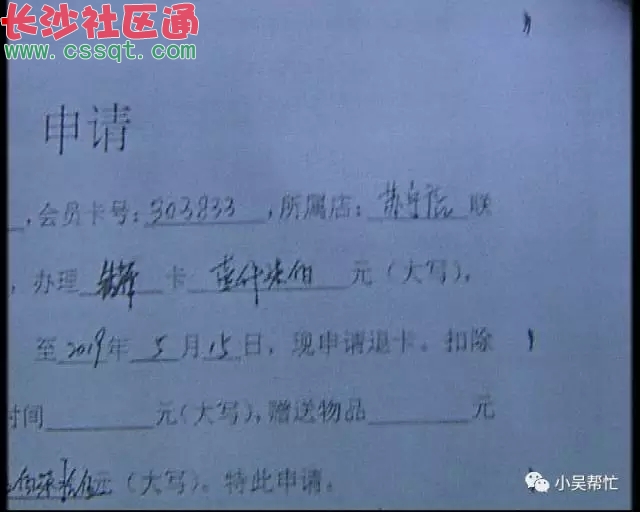 长沙社区通
www.cssqt.com
申请
，会员卡号：303833，所属店：苏宁店 联
，办理 卡 壹仟柒佰 元（大写），
至2019年5月15日，现申请退卡。扣除
时间 元（大写），赠送物品 元
元（大写）。特此申请。
小吴帮忙